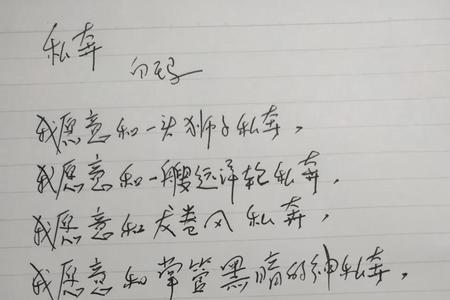 私奔
我愿意和一头狮子私奔，
我愿意和一艘远洋轮私奔，
我愿意和龙卷风私奔，
我愿意和掌管黑暗的神私奔，